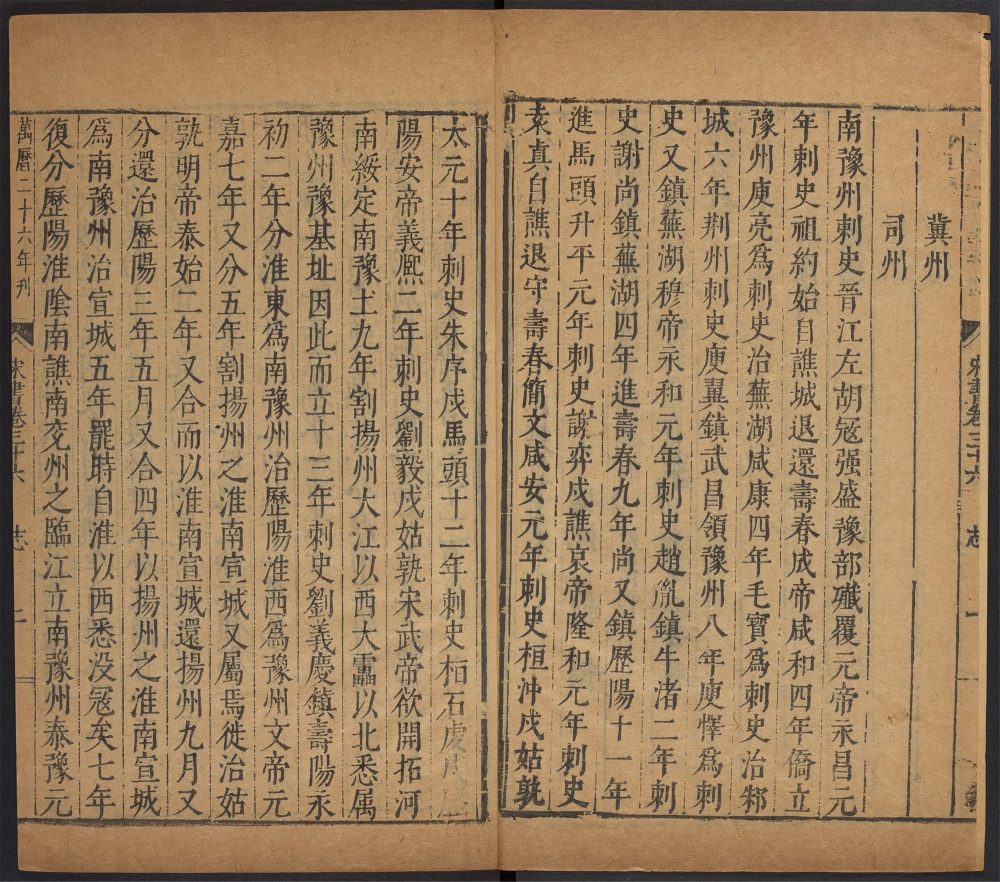 冀州
司州
南豫州刺史晉江左胡寇强盛豫部殲覆元帝永昌元
年刺史祖約始自譙城退還壽春成帝咸和四年僑立
豫州庾亮爲刺史治蕪湖咸康四年毛寶爲刺史治邾
城六年荆州刺史庾翼鎮武昌領豫州八年庾懌爲刺
史又鎮蕪湖穆帝永和元年刺史趙胤鎮牛渚二年刺
史謝尚鎮蕪湖四年進壽春九年尚又鎮歷陽十一年
進馬頭升平元年刺史謝弈戍譙哀帝隆和元年刺史
袁真自譙退守壽春簡文咸安元年刺史桓沖戍姑孰
宋書卷三十六 志 二
太元十年刺史朱序戍馬頭十二年刺史桓石虔戍
陽安帝義熙二年刺史劉毅戍姑孰宋武帝欲開拓河
南綏定南豫土九年割揚州大江以西大雷以北悉属
豫州豫基址因此而立十三年刺史劉義慶鎮壽陽永
初二年分淮東爲南豫州治歷陽淮西爲豫州文帝元
嘉七年又分五年割揚州之淮南宣城又屬焉徙治姑
孰明帝泰始二年又合而以淮南宣城還揚州九月又
分還治歷陽三年五月又合四年以揚州之淮南宣城
爲南豫州治宣城五年罷時自淮以西悉没寇矣七年
復分歷陽淮隂南譙南兖州之臨江立南豫州泰豫元
萬曆二十六年刊